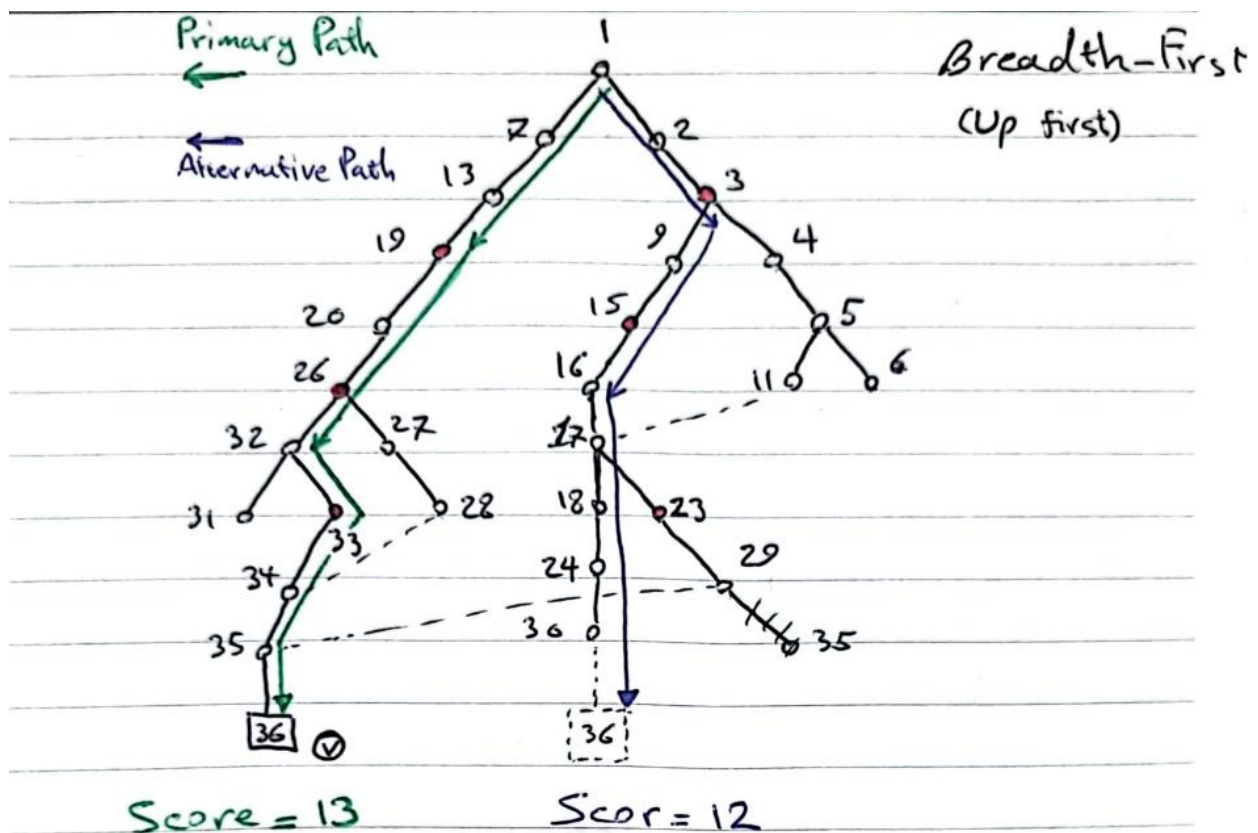 Primary Path
Alternative Path
Breadth-First
(Up first)
1
7
2
13
3
19
9
4
20
15
5
26
16
11
6
32
27
17
31
33
28
18
23
34
24
29
35
30
35
36
V
36
Score = 13
Scor = 12